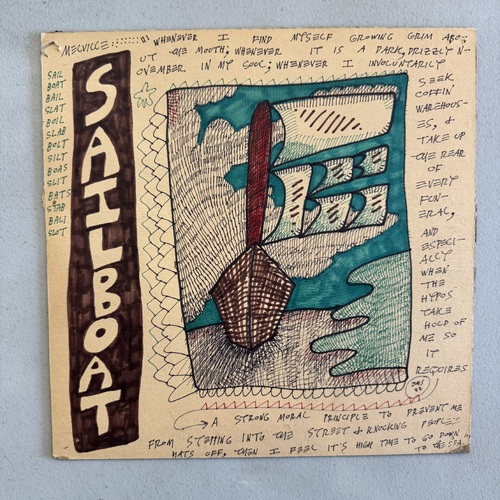 MELVILLE:::::: WHENEVER I FIND MYSELF GROWING GRIM ABO-
UT THE MOUTH; WHENEVER IT IS A DARK, DRIZZLY N-
OVEMBER IN MY SOUL; WHENEVER I INVOLUNTARILY
SEEK
COFFIN
WAREHOUS-
ES, &
TAKE UP
THE REAR
OF
EVERY
FUN-
ERAL,
AND
ESPECI-
ALLY
WHEN
THE
HYPOS
TAKE
HOLD OF
ME SO
IT
REQUIRES
A STRONG MORAL PRINCIPLE TO PREVENT ME
FROM STEPPING INTO THE STREET & KNOCKING PEOPLES
HATS OFF, THEN I FEEL IT'S HIGH TIME TO GO DOWN
TO THE SEA
SAIL
BOAT
BAIL
SLAT
BOIL
SLAB
BOLT
SILT
BOAS
SLIT
BATS
STAB
BALI
SLOT
SAILBOAT